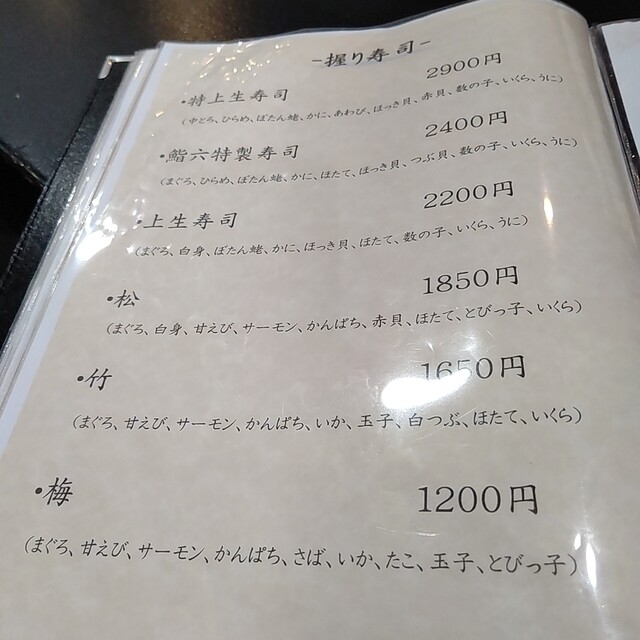 -握り寿司-
・特上生寿司 2900円
(中とろ、ひらめ、ぼたん蛯、かに、あわび、ほっき貝、赤貝、数の子、いくら、うに)
・鮨六特製寿司 2400円
(まぐろ、ひらめ、ぼたん蛯、かに、ほたて、ほっき貝、つぶ貝、数の子、いくら、うに)
・上生寿司 2200円
(まぐろ、白身、ぼたん蛯、かに、ほっき貝、ほたて、数の子、いくら、うに)
・松 1850円
(まぐろ、白身、甘えび、サーモン、かんぱち、赤貝、ほたて、とびっ子、いくら)
・竹 1650円
(まぐろ、甘えび、サーモン、かんぱち、いか、玉子、白つぶ、ほたて、いくら)
・梅 1200円
(まぐろ、甘えび、サーモン、かんぱち、さば、いか、たこ、玉子、とびっ子)